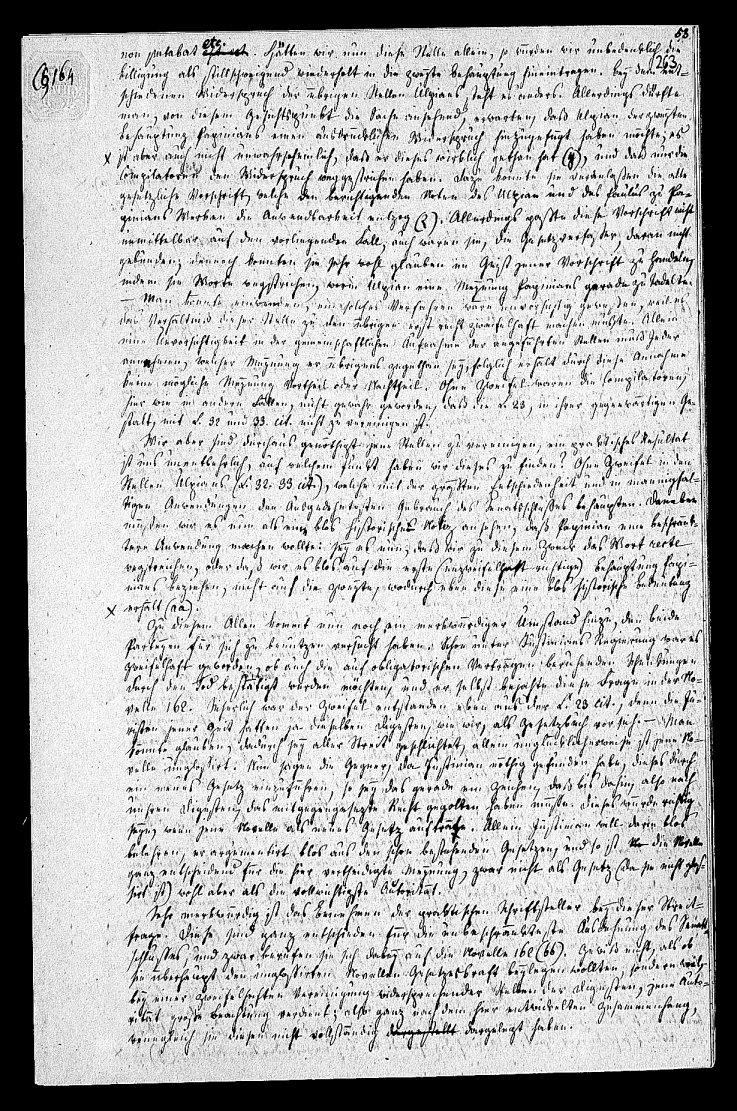 58
263
B 164
non putabat etc. Hätten wir nun diese Stelle allein, so würden wir unbedenklich die
billigung als stillschweigend wiederholt in die zweyte Behauptung hineintragen. Bey dem ent-
schiedenen Widerspruch der übrigen Stellen Ulpians steht es anders. Allerdings dürfte
man, von diesem Gesichtspunkt die Sache ansehend, erwarten, daß Ulpian der zweyten
Behauptung Papinians einen ausdrücklichen Widerspruch hinzugefügt haben möchte; es
x ist aber auch nicht unwahrscheinlich, daß er dieses wirklich gethan hat (y), und daß nur die
Compilatoren den Widerspruch weggestrichen haben. Dazu konnte sie veranlassen die alte
gesetzliche Vorschrift, welche den berichtigenden Noten des Ulpian und des Paulus zu Pa-
pinians Werken die Anwendbarkeit entzog (z). Allerdings paßte diese Vorschrift nicht
unmittelbar auf den vorliegenden Fall, auch waren sie, die Gesetzverfasser, daran nicht
gebunden; dennoch konnten sie sehr wohl glauben im Geist jener Vorschrift zu handeln,
indem sie Worte wegstrichen, worin Ulpian eine Meynung Papinians gerade zu tadelte.
— Man könnte einwenden, ein solches Verfahren wäre unvorsichtig gewesen, weil es
das Verhältniß dieser Stelle zu den übrigen erst recht zweifelhaft machen mußte. Allein
eine Unvorsichtigkeit in der gemeinschaftlichen Aufnahme der angeführten Stellen muß Jeder
annehmen, welcher Meynung er übrigens zugethan sey, folglich erhält durch diese Annahme
keine mögliche Meynung Vortheil oder Nachtheil. Ohne Zweifel waren die Compilatoren,
hier wie in andern Fällen, nicht gewahr geworden, daß die L. 23, in ihrer gegenwärtigen Ge-
stalt, mit L. 32 und 33. cit. nicht zu vereinigen ist.
Wir aber sind durchaus genöthigt jene Stellen zu vereinigen, ein praktisches Resultat
ist uns unentbehrlich, auf welchem Punkt haben wir dieses zu finden? Ohne Zweifel in den
Stellen Ulpians (L. 32. 33. cit.), welche mit der größten Entschiedenheit und in mannigfal-
tigen Anwendungen den ausgedehntesten Gebrauch des Senatsschlusses behaupten. Daneben
müssen wir es nun als eine blos historische Notiz ansehen, daß Papinian eine beschränk-
tere Anwendung machen wollte: sey es nun, daß wir zu diesem Zweck das Wort recte
wegstreichen, oder daß wir es blos auf die erste (unzweifelhaft richtige) Behauptung Papi-
nians beziehen, nicht auf die zweyte, wodurch eben diese eine blos historische Bedeutung
x erhält (aa).
Zu diesem Allen kommt nun noch ein merkwürdiger Umstand hinzu, den beide
Parteyen für sich zu benutzen versucht haben. Schon unter Justinians Regierung war es
zweifelhaft geworden, ob auch die auf obligatorischen Verträgen beruhenden Schenkungen
durch den Tod bestätigt werden möchten, und er selbst bejahte diese Frage in der No-
velle 162. Sicherlich war der Zweifel entstanden eben aus der L. 23 cit.; denn die Ju-
risten jener Zeit hatten ja dieselben Digesten, wie wir, als Gesetzbuch vor sich. — Man
könnte glauben, dadurch sey aller Streit geschlichtet, allein unglücklicherweise ist jene No-
velle unglossirt. Nun sagen die Gegner, da Justinian nöthig gefunden habe, dieses durch
ein neues Gesetz einzuführen, so sey das gerade ein Zeichen, daß bis dahin, also nach
unsren Digesten, das entgegengesetzte Recht gegolten haben müsse. Dieses würde richtig
seyn, wenn jene Novelle als neues Gesetz aufträte. Allein Justinian will darin blos
belehren, er argumentirt blos aus den schon bestehenden Gesetzen, und so ist die Novelle
ganz entscheidend für die hier vertheidigte Meynung, zwar nicht als Gesetz (da sie nicht glos-
sirt ist) wohl aber als die vollwichtigste Autorität.
Sehr merkwürdig ist das Benehmen der praktischen Schriftsteller bey dieser Streit-
frage. Diese sind ganz entschieden für die unbeschränkteste Ausdehnung des Senats-
schlusses, und zwar berufen sie sich dabey auf die Novelle 162 (bb). Gewiß nicht, als ob
sie überhaupt den unglossirten Novellen Gesetzeskraft beylegen wollten, sondern weil
bey einer zweifelhaften Vereinigung widersprechender Stellen der Digesten, jene Auto-
rität große Beachtung verdient; also ganz nach dem hier entwickelten Zusammenhang,
wenngleich sie diesen nicht vollständig dargestellt dargelegt haben.